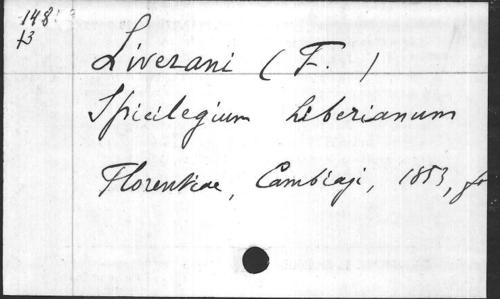 148
f3
Liverani (F.)
Spicilegium Liberianum
Florentiae, Cambiagi, 1853, fo